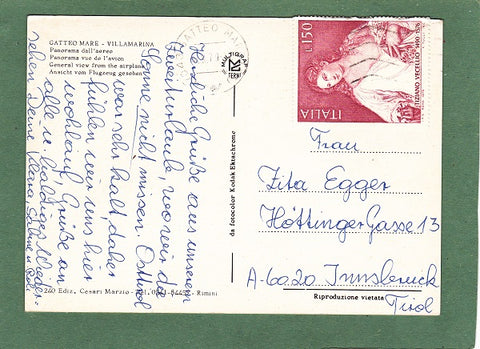 GATTEO MARE - VILLAMARINA
Panorama dall'aereo
Panorama vue de l'avion
General view from the airplane
Ansicht vom Flugzeug gesehen
Herzliche Grüße aus unserem
Bade-Urlaub, wo wir die
Sonne nicht missen. Osttirol
war sehr kalt, daher
fühlen wir uns hier
wohlauf. Grüße an
alle u. baldiges Wieder-
sehen
Deine
GATTEO MARE
L.150
TIZIANO VECELLIO 1490-1576
ITALIA
da fotocolor Kodak Ektachrome
Frau
Zita Egger
Höttinger Gasse 13
A-6020 Innsbruck
Tirol
Riproduzione vietata
Ediz. Cesari Marzio - Tel. - Rimini